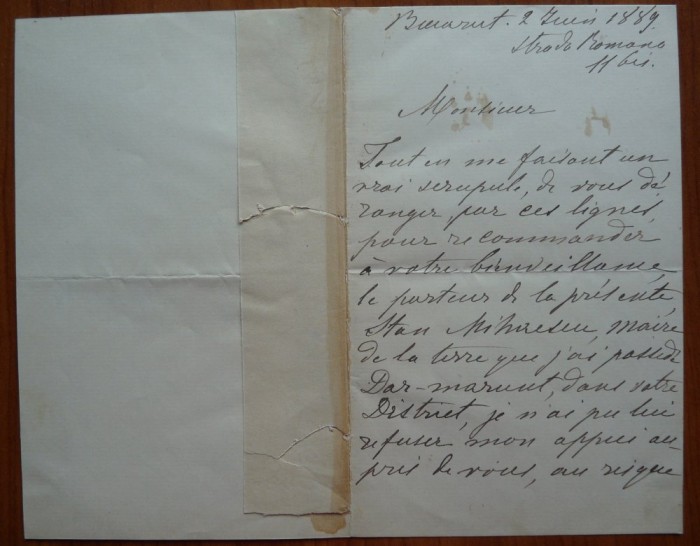 Bucarest. 2 Juin 1889.
Strada Romana
11 bis.
Monsieur
Tout en me faisant un
vrai scrupule, de vous dé
ranger par ces lignes,
pour recommander
à votre bienveillance,
le porteur de la présente,
Stan Mihaescu, maire
de la terre que j'ai possedé
dans votre
District, je n'ai pu lui
refuser mon appui au-
près de vous, au risque